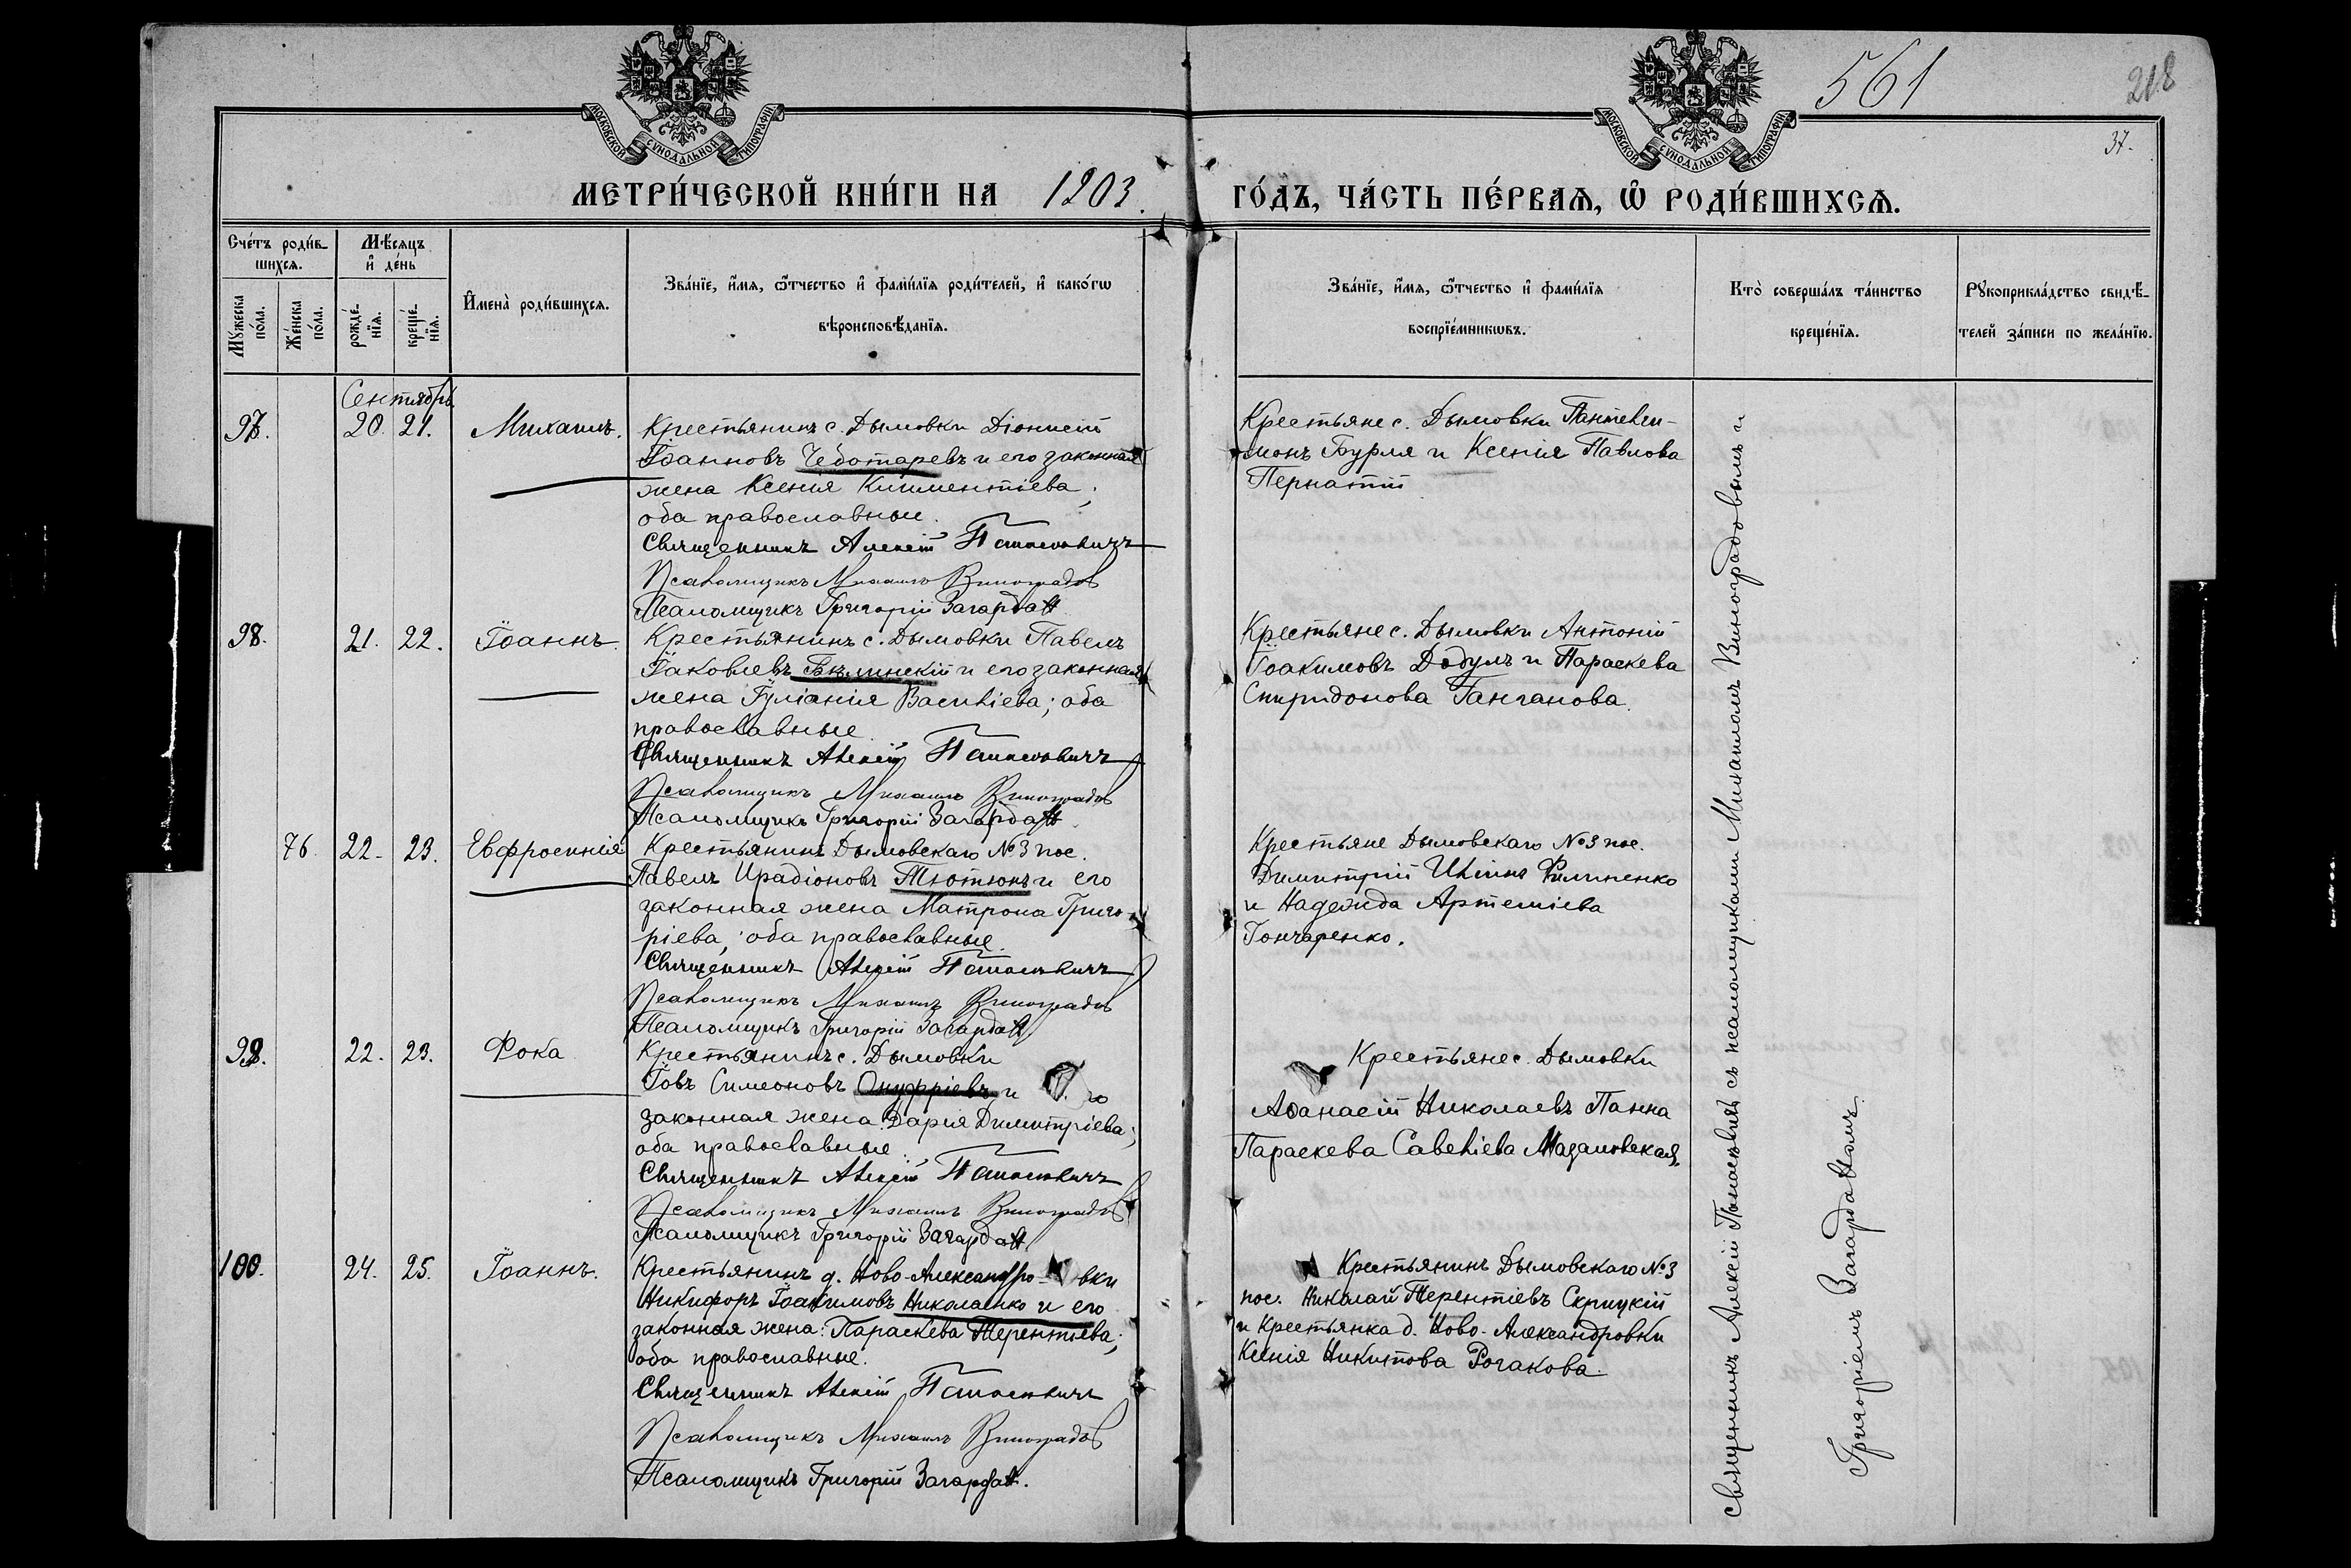 561
218
37.
МОСКОВСКОЙ СѴНОДАЛЬНОЙ ТИПОГРАФІИ
МОСКОВСКОЙ СѴНОДАЛЬНОЙ ТИПОГРАФІИ
МЕТРИ́ЧЕСКОЙ КНИ́ГИ НА 1903. ГО́ДЪ, ЧА́СТЬ ПЕ́РВАѦ, Ѽ РОДИ́ВШИХСѦ.
Сче́тъ роди́в-
шихся.
Мѣ́сяцъ
и҆ де́нь
Мꙋжеска
по́ла.
Же́нска
по́ла.
рожде́-
нїя.
креще́-
нїя.
И҆мена̀ роди́вшихся.
Зва́нїе, и҆́мя, ѻ҆́тчество и҆ фами́лїя роди́телей, и҆ како́гѡ
вѣроисповѣ́данїя.
Зва́нїе, и҆́мя, ѻ҆́тчество и҆ фами́лїя
воспрїе́мникѡвъ.
Кто̀ соверша́лъ та́инство
креще́нїя.
Рꙋкоприкла́дство свидѣ́-
телей за́писи по жела́нїю.
Сентябрь
97. 20. 21. Михаилъ. Крестьянинъ с. Дымовки Діонисій
Іоанновъ Чеботаревъ и его законная
жена Ксенія Климентіева;
оба православные.
Священникъ Алексій Панасевичъ
Псаломщикъ Михаилъ Виноградов
Псаломщикъ Григорій Загардан
Крестьяне с. Дымовки Пантелеи-
монъ Бурля и Ксенія Павлова
Пернатій
98. 21. 22. Іоаннъ. Крестьянинъ с. Дымовки Павелъ
Іаковлевъ Бѣлинскій и его законная
жена Іуліанія Василіева; оба
православные
Священникъ Алексій Панасевичъ
Псаломщикъ Михаилъ Виноградов
Псаломщикъ Григорій Загардан
Крестьяне с. Дымовки Антоній
Іоакимовъ Додулъ и Параскева
Спиридонова Ганганова.
76. 22. 23. Евфросинія Крестьянинъ Дымовскаго №3 пос.
Павелъ Иродіоновъ Тютюнъ и его
законная жена Матрона Григо-
ріева, оба православные.
Священникъ Алексій Панасевичъ
Псаломщикъ Михаилъ Виноградов
Псаломщикъ Григорій Загардан
Крестьяне Дымовскаго №3 пос.
Димитрій Иліинъ Филипенко
и Надежда Артеміева
Гончаренко.
99. 22. 23. Фока Крестьянинъ с. Дымовки
Іовъ Симеоновъ Онуфріевъ и го
законная жена Дарія Димитріева;
оба православные.
Священникъ Алексій Панасевичъ
Псаломщикъ Михаилъ Виноградов
Псаломщикъ Григорій Загардан
Крестьяне с. Дымовки
Аѳанасій Николаевъ Панна
Параскева Савеліева Мазановская.
100. 24. 25. Іоаннъ. Крестьянинъ д. Ново-Александро-вки
Никифоръ Іоакимовъ Николаенко и его
законная жена: Параскева Терентіева;
оба православные.
Священникъ Алексій Панасевичъ
Псаломщикъ Михаилъ Виноградов
Псаломщикъ Григорій Загардан.
Крестьянинъ Дымовскаго №3
пос. Николай Терентіевъ Скрицкій
и Крестьянка д. Ново-Александровки
Ксенія Никитова Рогакова.
Священникъ Алексій Панасевичъ съ псаломщиками Михаиломъ Виноградовымъ и
Григоріемъ Загарданомъ.